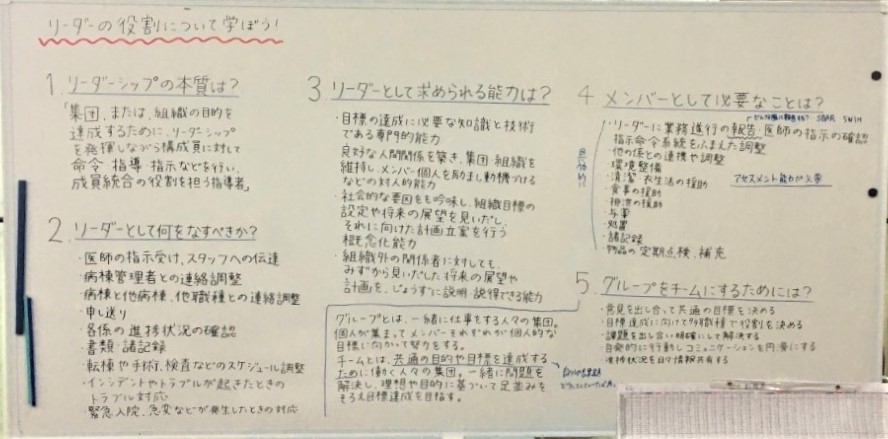 リーダーの役割について学ぼう!
1. リーダーシップの本質は?
「集団、または、組織の目的を
達成するために、リーダーシップ
を発揮しながら構成員に対して
命令・指導・指示などを行い、
成員統合の役割を担う指導者」
2. リーダーとして何をなすべきか?
・医師の指示受け、スタッフへの伝達
・病棟管理者との連絡調整
・病棟と他病棟、他職種との連絡調整
・申し送り
・各係の進捗状況の確認
・書類・諸記録
・転棟や手術、検査などのスケジュール調整
・インシデントやトラブルが起きたときの
トラブル対応
・緊急入院、急変などが発生したときの対応
3 リーダーとして求められる能力は?
・目標の達成に必要な知識と技術
である専門的能力
・良好な人間関係を築き、集団・組織を
維持し、メンバー個人を励まし動機づける
などの対人的能力
・社会的な要因をも吟味し、組織目標の
設定や将来の展望を見いだし
それに向けた計画立案を行う
概念化能力
・組織外の関係者に対しても、
みずから見いだした将来の展望や
計画を、じょうずに説明・説得できる能力
グループとは、一緒に仕事をする人々の集団。
個人が集まってメンバーそれぞれが個人的な
目標に向かって努力をする。
チームとは、共通の目的や目標を達成する
ために働く人々の集団。一緒に問題を
解決し、理想や目的に基づいて足並みを
そろえ目標達成を目指す。
4 メンバーとして必要なことは?
SBAR 5W1H
・リーダーに業務進行の報告、医師の指示の確認
・指示命令系統をふまえた調整
・他の係との連携や調整
・環境整備
・清潔・衣生活の援助
アセスメント能力が必要
・食事の援助
・排泄の援助
・与薬
・処置
・諸記録
・物品の定期点検、補充
5. グループをチームにするためには?
・意見を出し合って共通の目標を決める
・目標達成に向けて多職種で役割を決める
・課題を出し合い明確にして解決する
・自発的に行動しコミュニケーションを円滑にする
・進捗状況を日々情報共有する